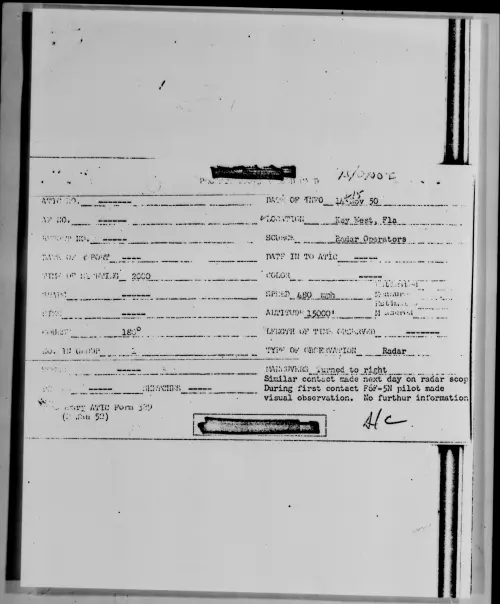 ATIC NO. ------- DATE OF INFO 14-15 Nov 50
AF NO. ------ LOCATION Key West, Fla
REPORT NO. ----- SOURCE Radar Operators
DATE OF REPORT ---- DATE IN TO ATIC -----
TIME OF SIGHTING 2000 COLOR -----
SHAPE ------ SPEED 480 mph
SIZE ----- ALTITUDE 15000'
COURSE 180° LENGTH OF TIME OBSERVED -------
NO. IN GROUP 1 TYPE OF OBSERVATION Radar
----- MANEUVERS Turned to right
Similar contact made next day on radar scop
----- SKETCHES ----- During first contact F6F-5N pilot made
visual observation. No further information
Temporary ATIC Form 329
(2 Jan 52)
A/C